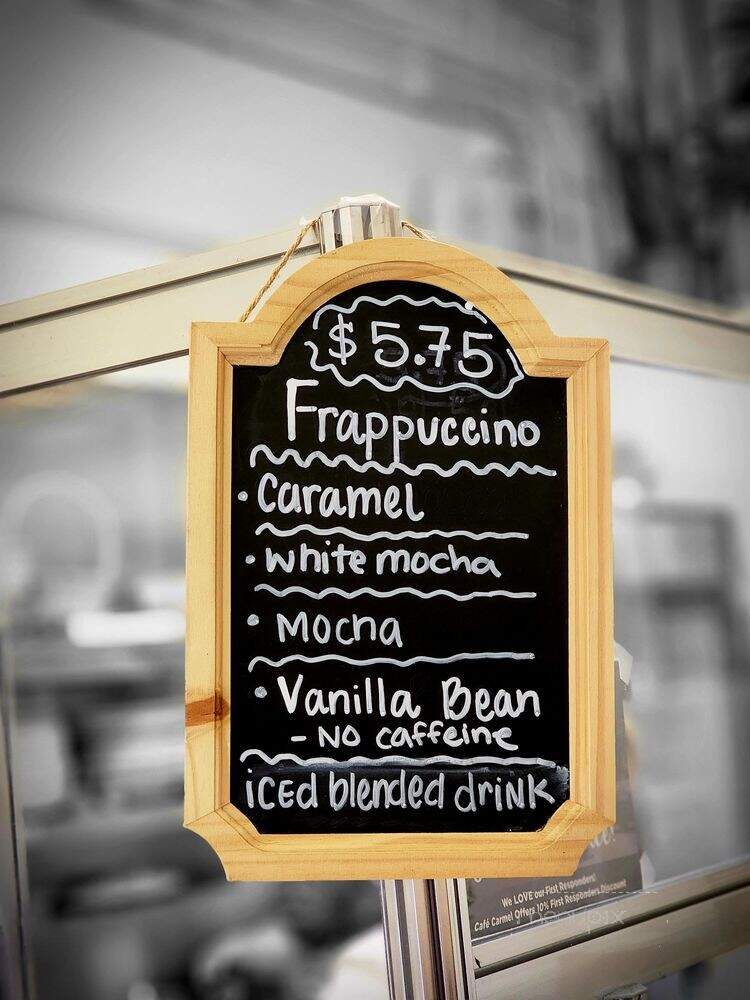 $5.75
Frappuccino
• Caramel
• White mocha
• Mocha
• Vanilla Bean
- No caffeine
iced blended drink
We LOVE our First Responders!
Café Carmel Offers 10% First Responders Discount